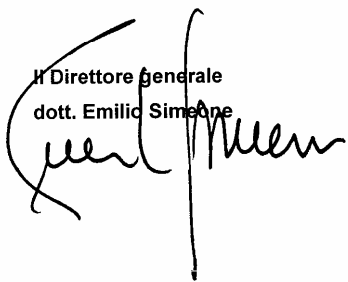 Il Direttore generale
dott. Emilio Simeone